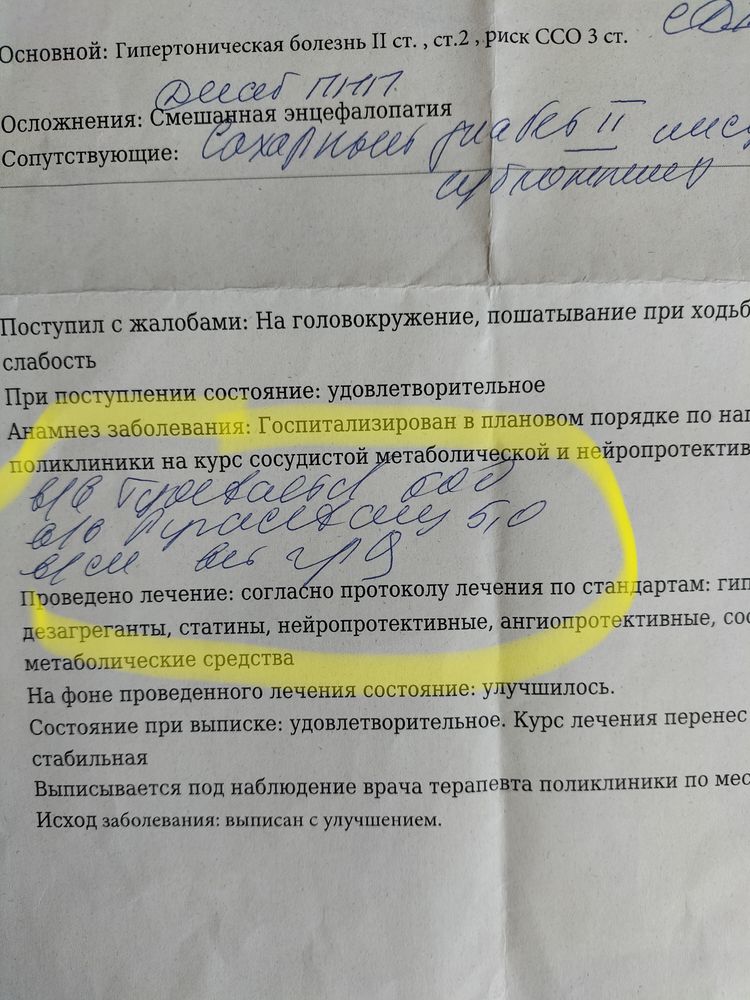 Основной: Гипертоническая болезнь II ст. , ст.2 , риск ССО 3 ст.
ПНП
Осложнения: Смешанная энцефалопатия
Сопутствующие: Сахарный диабет II
Поступил с жалобами: На головокружение, пошатывание при ходьб
слабость
При поступлении состояние: удовлетворительное
Анамнез заболевания: Госпитализирован в плановом порядке по нап
поликлиники на курс сосудистой метаболической и нейропротектив
в/в 600
в/в 5,0
в/м
Проведено лечение: согласно протоколу лечения по стандартам: гип
дезагреганты, статины, нейропротективные, ангиопротективные, сос
метаболические средства
На фоне проведенного лечения состояние: улучшилось.
Состояние при выписке: удовлетворительное. Курс лечения перенес
стабильная
Выписывается под наблюдение врача терапевта поликлиники по мес
Исход заболевания: выписан с улучшением.